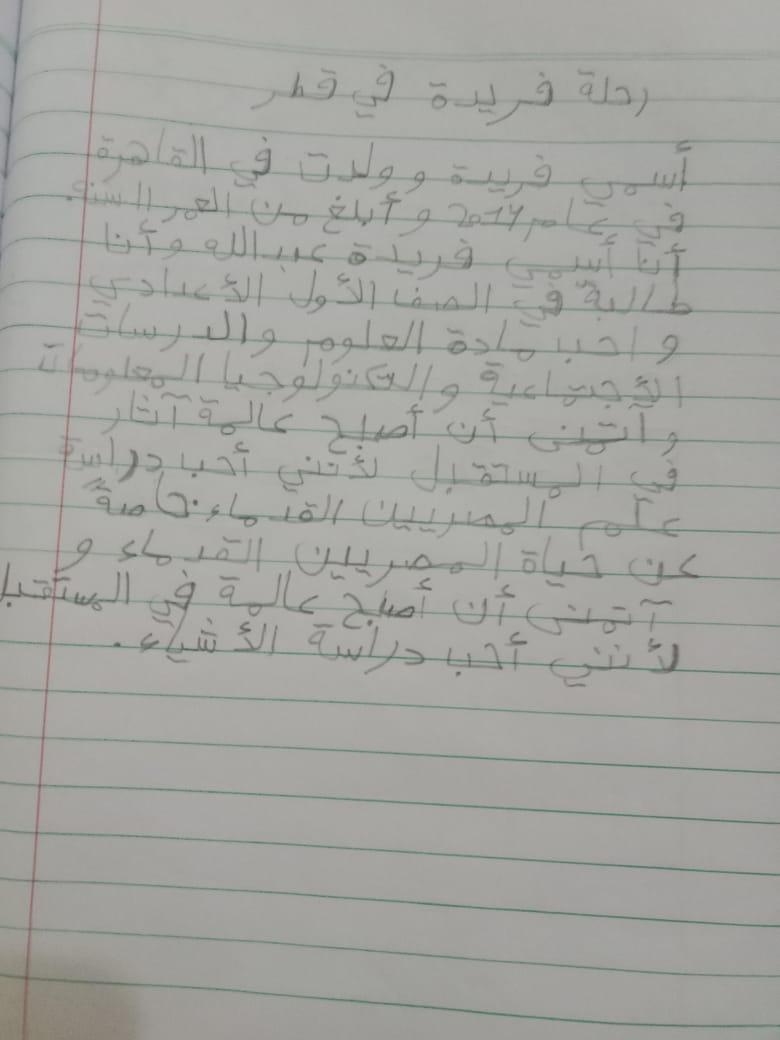 رحلة فريدة في قطر
أسمى فريدة وولدت في القاهرة
في عام 2014 و أبلغ من العمر السنة
أنا أسمى فريدة عبد الله وأنا
طالبة في الصف الأول الأعدادى
و احب مادة العلوم والدرسات
الأجتماعية والتكنولوجيا المعلومات
وأتمنى أن أصبح عالمة آثار
في المستقبل لأنني أحب دراسة
علم المصريين القدماء خاصةً
عن حياة المصريين القدماء و
آتمنى أن أصبح عالمة في المستقبل
لأنني أحب دراسة الأشياء.